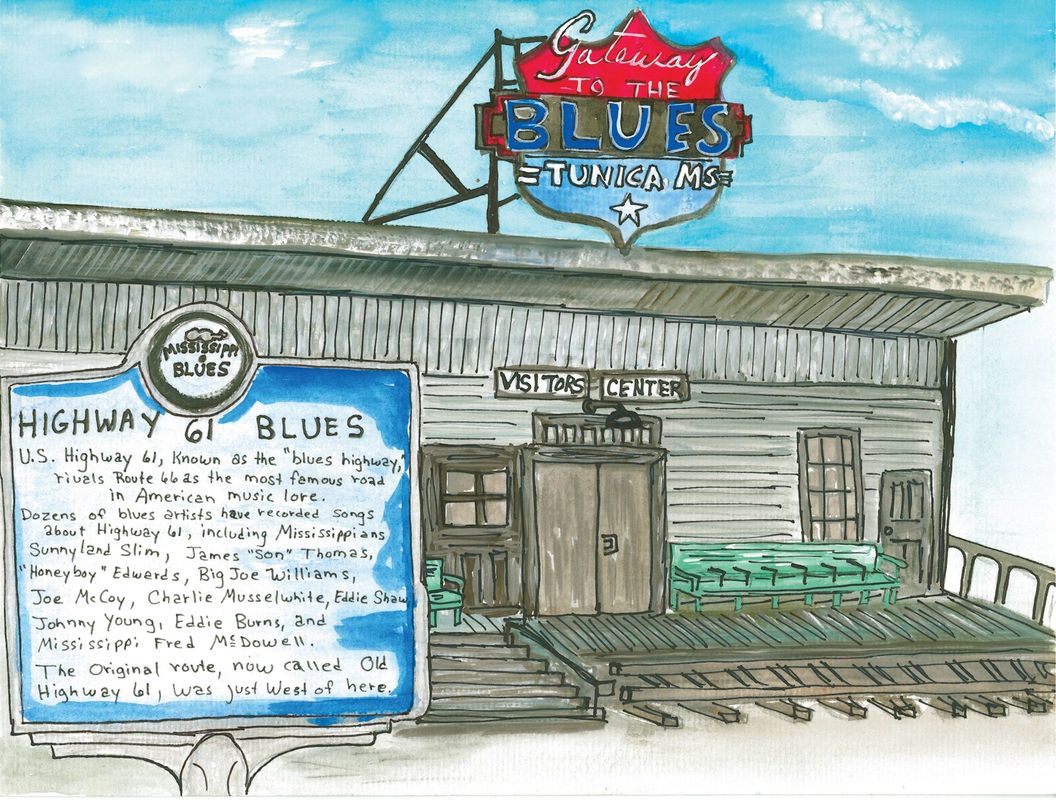 Gateway
TO THE
BLUES
TUNICA MS
VISITORS CENTER
MISSISSIPPI
BLUES
HIGHWAY 61 BLUES
U.S. Highway 61, Known as the "blues highway,
rivals Route 66 as the most famous road
in American music lore.
Dozens of blues artists have recorded songs
about Highway 61, including Mississippians
Sunnyland Slim, James "Son" Thomas,
"Honeyboy" Edwards, Big Joe Williams,
Joe McCoy, Charlie Musselwhite, Eddie Shaw
Johnny Young, Eddie Burns, and
Mississippi Fred McDowell.
The Original route, now called Old
Highway 61, was just west of here.